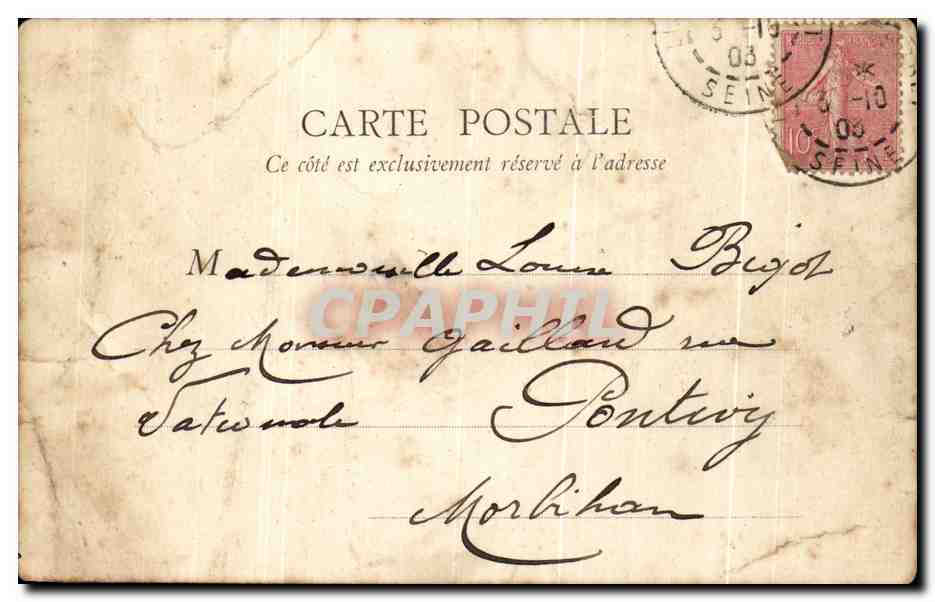 3 -10
03
SEINE
3 -10
03
SEINE
10
CARTE POSTALE
Ce côté est exclusivement réservé à l'adresse
Mademoiselle Louise Bigot
CPAPHIL
Chez Monsieur Gaillard rue
Nationale Pontivy
Morbihan